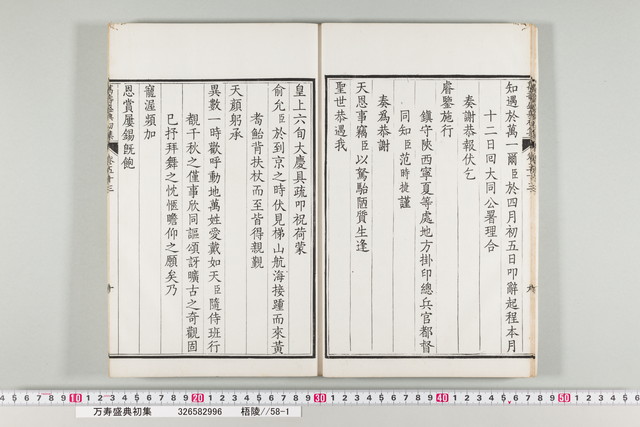 知遇於萬一爾臣於四月初五日叩辭起程本月
十二日回大同公署理合
奏謝恭報伏乞
睿鑒施行
鎮守陝西寧夏等處地方掛印總兵官都督
同知臣范時捷謹
奏為恭謝
天恩事竊臣以駑駘陋質生逢
聖世恭遇我
皇上六旬大慶具疏叩祝荷蒙
俞允臣於到京之時伏見梯山航海接踵而來黃
耇鮐背扶杖而至皆得親覲
天顏躬承
異數一時歡呼動地萬姓愛戴如天臣隨侍班行
覩千秋之僅事欣同謳頌訝曠古之奇觀固
已抒拜舞之忱愜瞻仰之願矣乃
寵渥頻加
恩賞屢錫旣飽
万寿盛典初集 326582996 梧陵//58-1
10 20 30 40 50